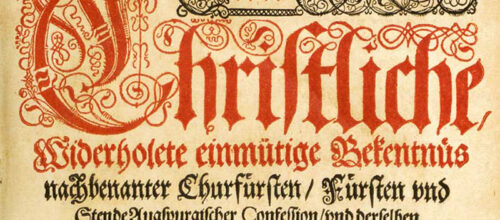 Christliche,
Widerholete einmütige Bekentnüs
nachbenanter Churfürsten / Fürsten vnd
Stende Augspurgischer Confession / vnd derselben